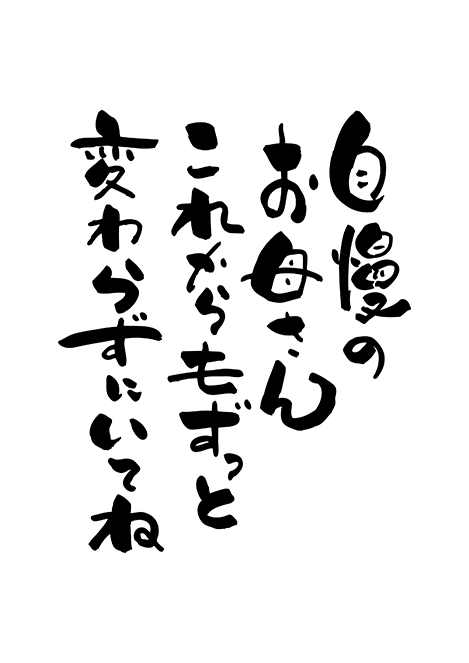 自慢の
お母さん
これからもずっと
変わらずにいてね